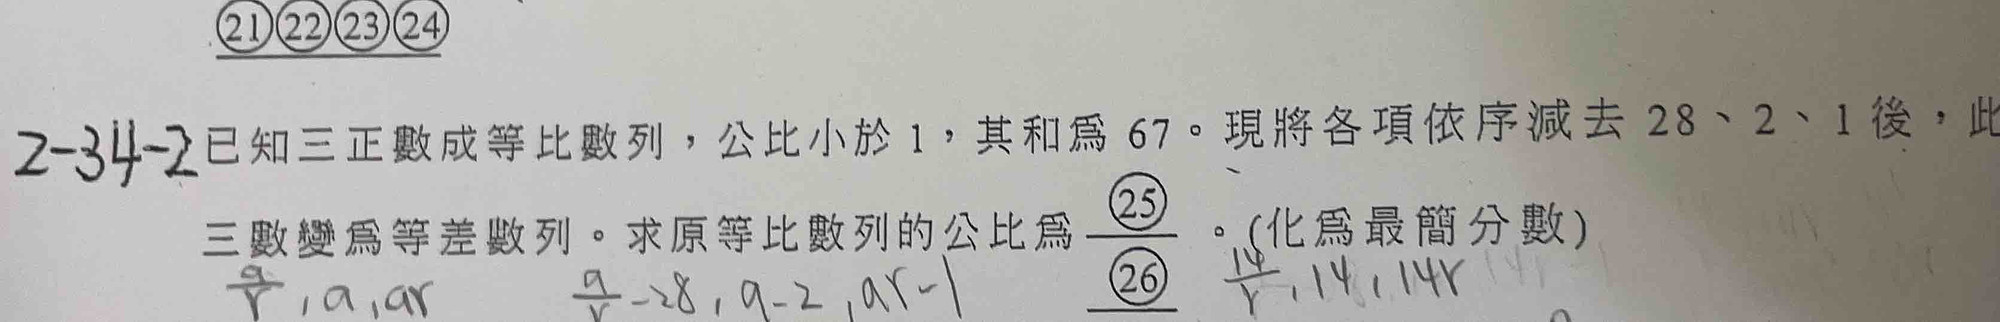 ㉑㉒㉓㉔
2-34-2已知三正數成等比數列，公比小於 1，其和爲 67。現將各項依序減去 28、2、1 後，此
三數變爲等差數列。求原等比數列的公比爲 ㉕/㉖ 。(化爲最簡分數)
a/r , a , ar a/r -28 , a-2 , ar-1 14/r , 14 , 14r